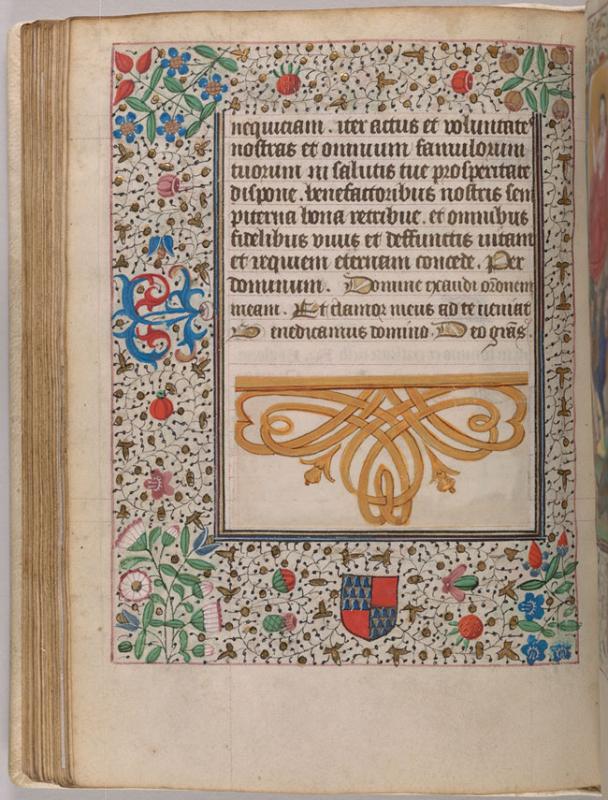 nequiciam. iter actus et voluntate
nostras et omnium famulorum
tuorum in salutis tue prosperitate
dispone. benefactoribus nostris sem
piterna bona retribue. et omnibus
fidelibus viuis et deffunctis vitam
et requiem eternam concede. Per
dominum. Domine exaudi oronem
meam. Et clamor meus ad te veniat
Benedicamus domino. Deo gr̄as.